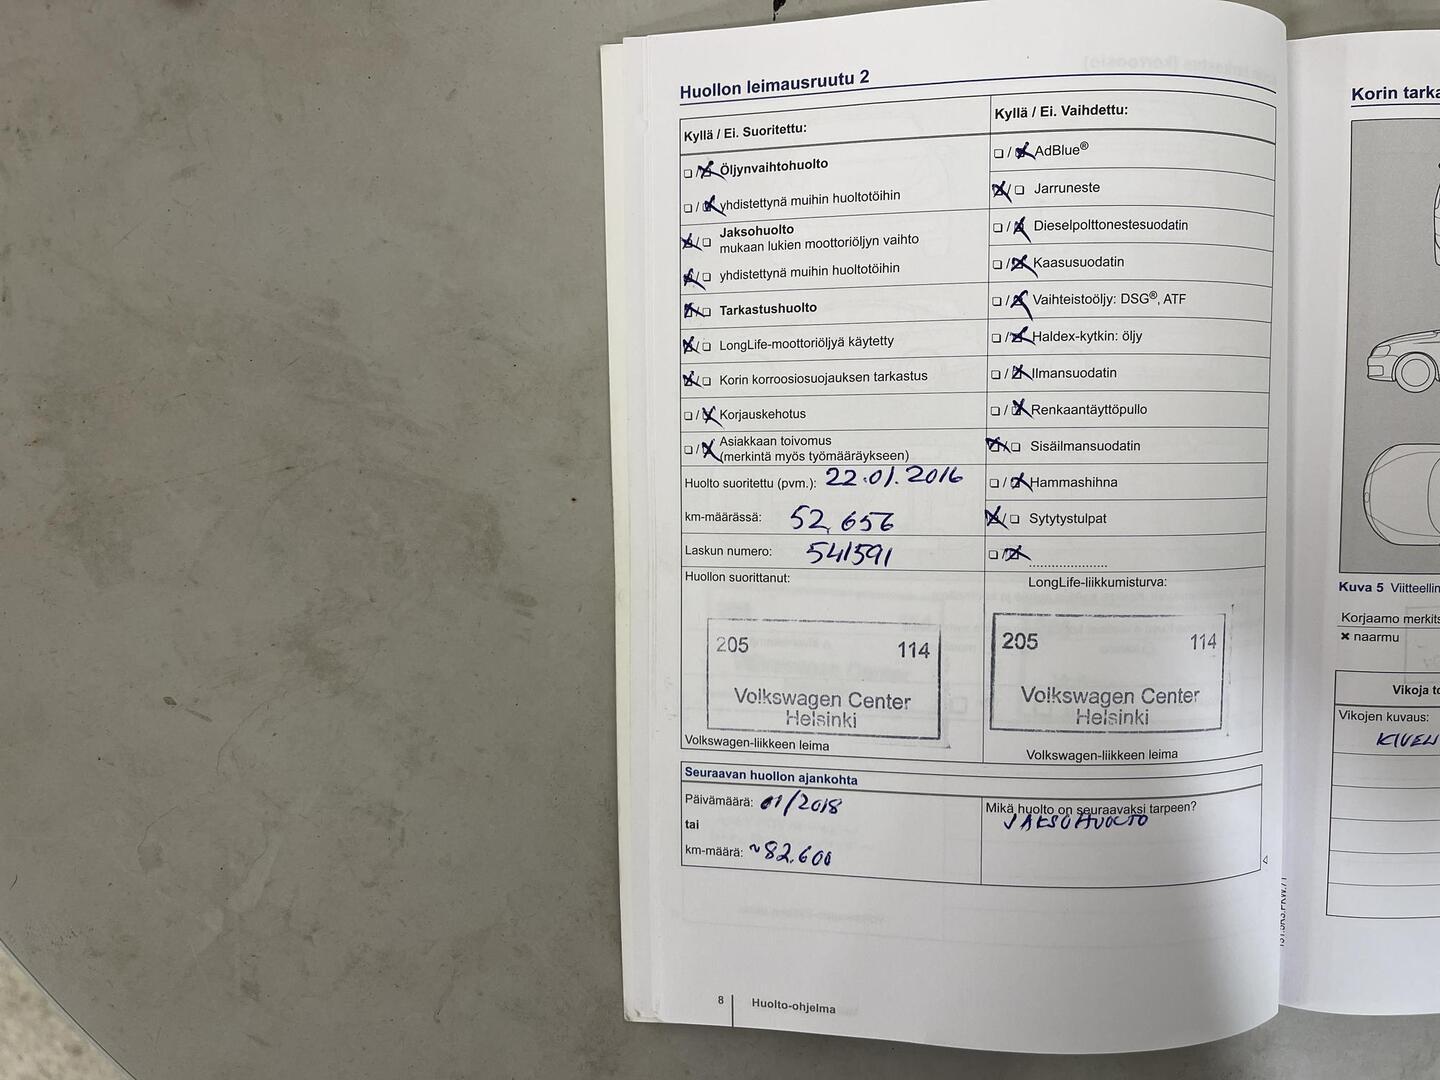 Huollon leimausruutu 2
Kyllä / Ei. Suoritettu:
Öljynvaihtohuolto
yhdistettynä muihin huoltotöihin
Jaksohuolto
mukaan lukien moottoriöljyn vaihto
yhdistettynä muihin huoltotöihin
Tarkastushuolto
LongLife-moottoriöljyä käytetty
Korin korroosiosuojauksen tarkastus
Korjauskehotus
Asiakkaan toivomus
(merkintä myös työmääräykseen)
Huolto suoritettu (pvm.): 22.01.2016
km-määrässä: 52,656
Laskun numero: 541591
Huollon suorittanut:
205 114
Volkswagen Center
Helsinki
Volkswagen-liikkeen leima
Kyllä / Ei. Vaihdettu:
AdBlue®
Jarruneste
Dieselpolttonestesuodatin
Kaasusuodatin
Vaihteistoöljy: DSG®, ATF
Haldex-kytkin: öljy
Ilmansuodatin
Renkaantäyttöpullo
Sisäilmansuodatin
Hammashihna
Sytytystulpat
LongLife-liikkumisturva:
205 114
Volkswagen Center
Helsinki
Volkswagen-liikkeen leima
Seuraavan huollon ajankohta
Päivämäärä: 01/2018
tai
km-määrä: ~82.600
Mikä huolto on seuraavaksi tarpeen?
JAKSOHUOLTO
8 Huolto-ohjelma
Korin tarka
Kuva 5 Viitteellin
Korjaamo merkits
✖ naarmu
Vikoja to
Vikojen kuvaus:
KIVEN